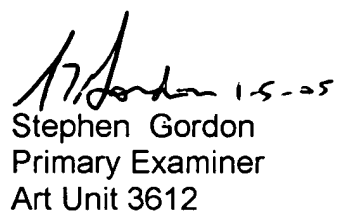 S. Gordon 1-5-05
Stephen Gordon
Primary Examiner
Art Unit 3612